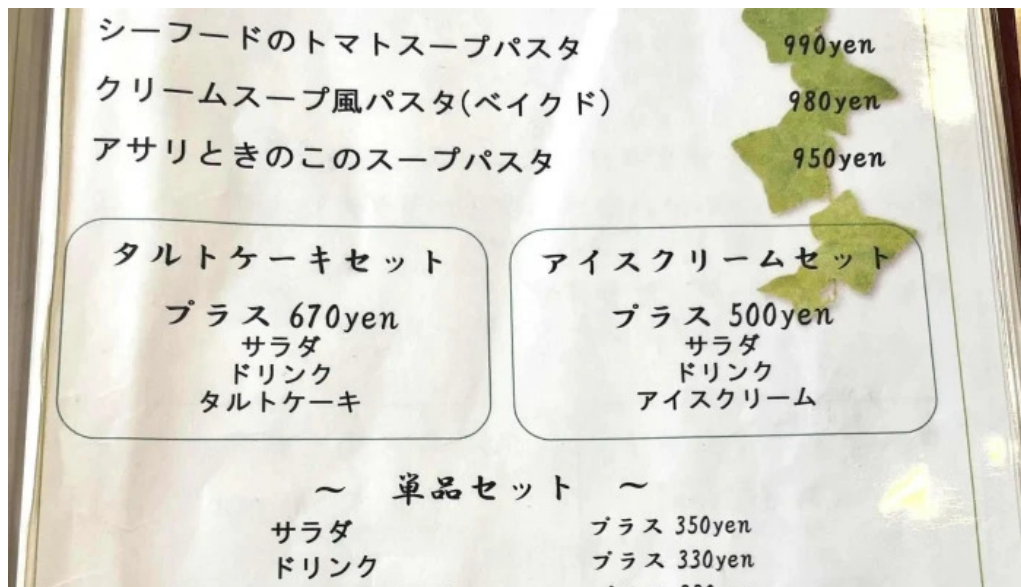 シーフードのトマトスープパスタ 990yen
クリームスープ風パスタ(ベイクド) 980yen
アサリときのこのスープパスタ 950yen
タルトケーキセット
プラス 670yen
サラダ
ドリンク
タルトケーキ
アイスクリームセット
プラス 500yen
サラダ
ドリンク
アイスクリーム
～ 単品セット ～
サラダ プラス 350yen
ドリンク プラス 330yen